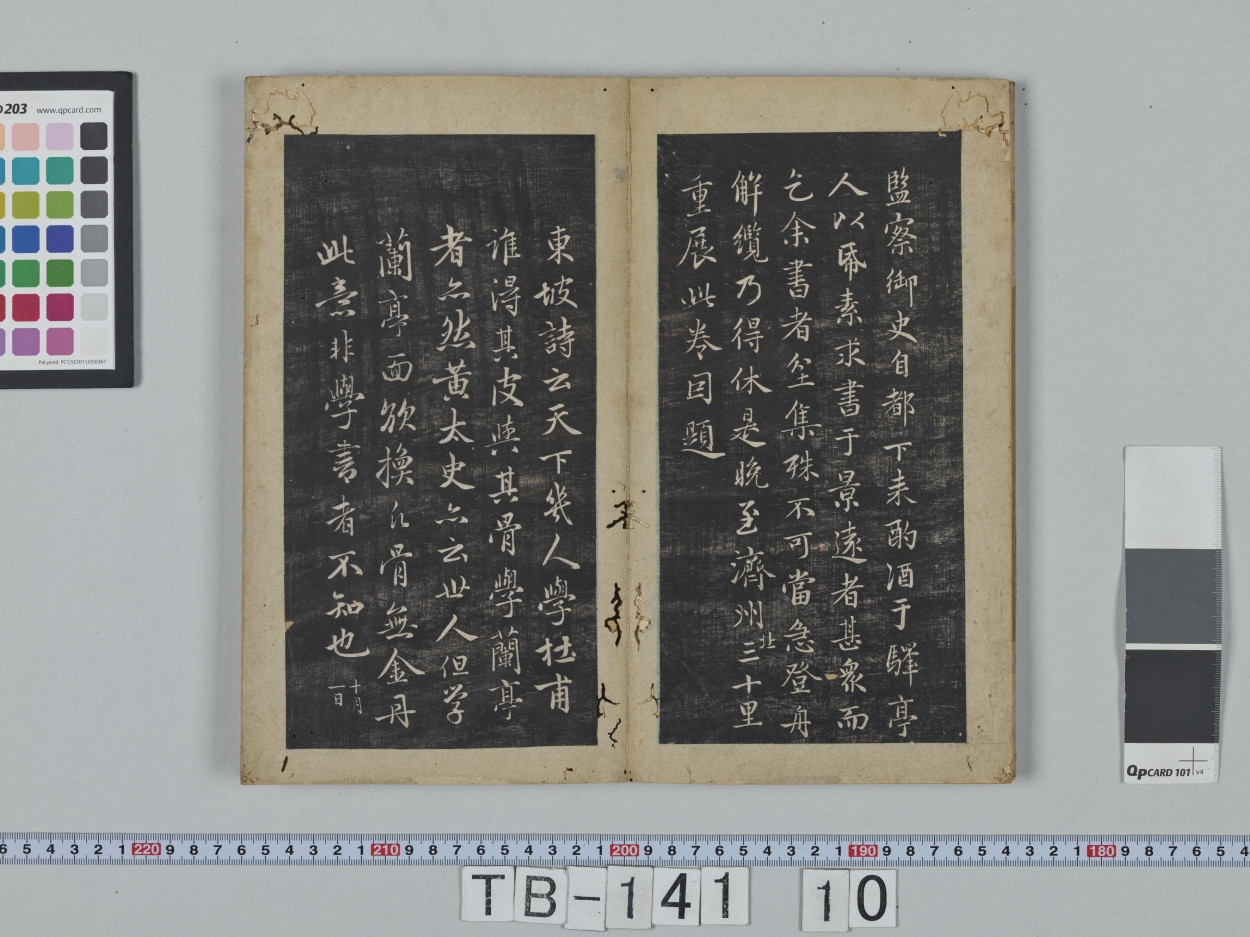 監察御史自都下来酌酒于驛亭
人以帋素求書于景遠者甚衆而
乞余書者坌集殊不可當急登舟
解纜乃得休是晚至濟州北三十里
重展此卷因題
東坡詩云天下幾人學杜甫
誰得其皮與其骨學蘭亭
者亦然黃太史亦云世人但学
蘭亭面欲換凡骨無金丹
此意非學書者不知也
十月
一日
203 www.qpcard.com
QpCARD 101 v4
6 5 4 3 2 1 220 9 8 7 6 5 4 3 2 1 210 9 8 7 6 5 4 3 2 1 200 9 8 7 6 5 4 3 2 1 190 9 8 7 6 5 4 3 2 1 180 9 8 7 6 5 4
TB-141 10